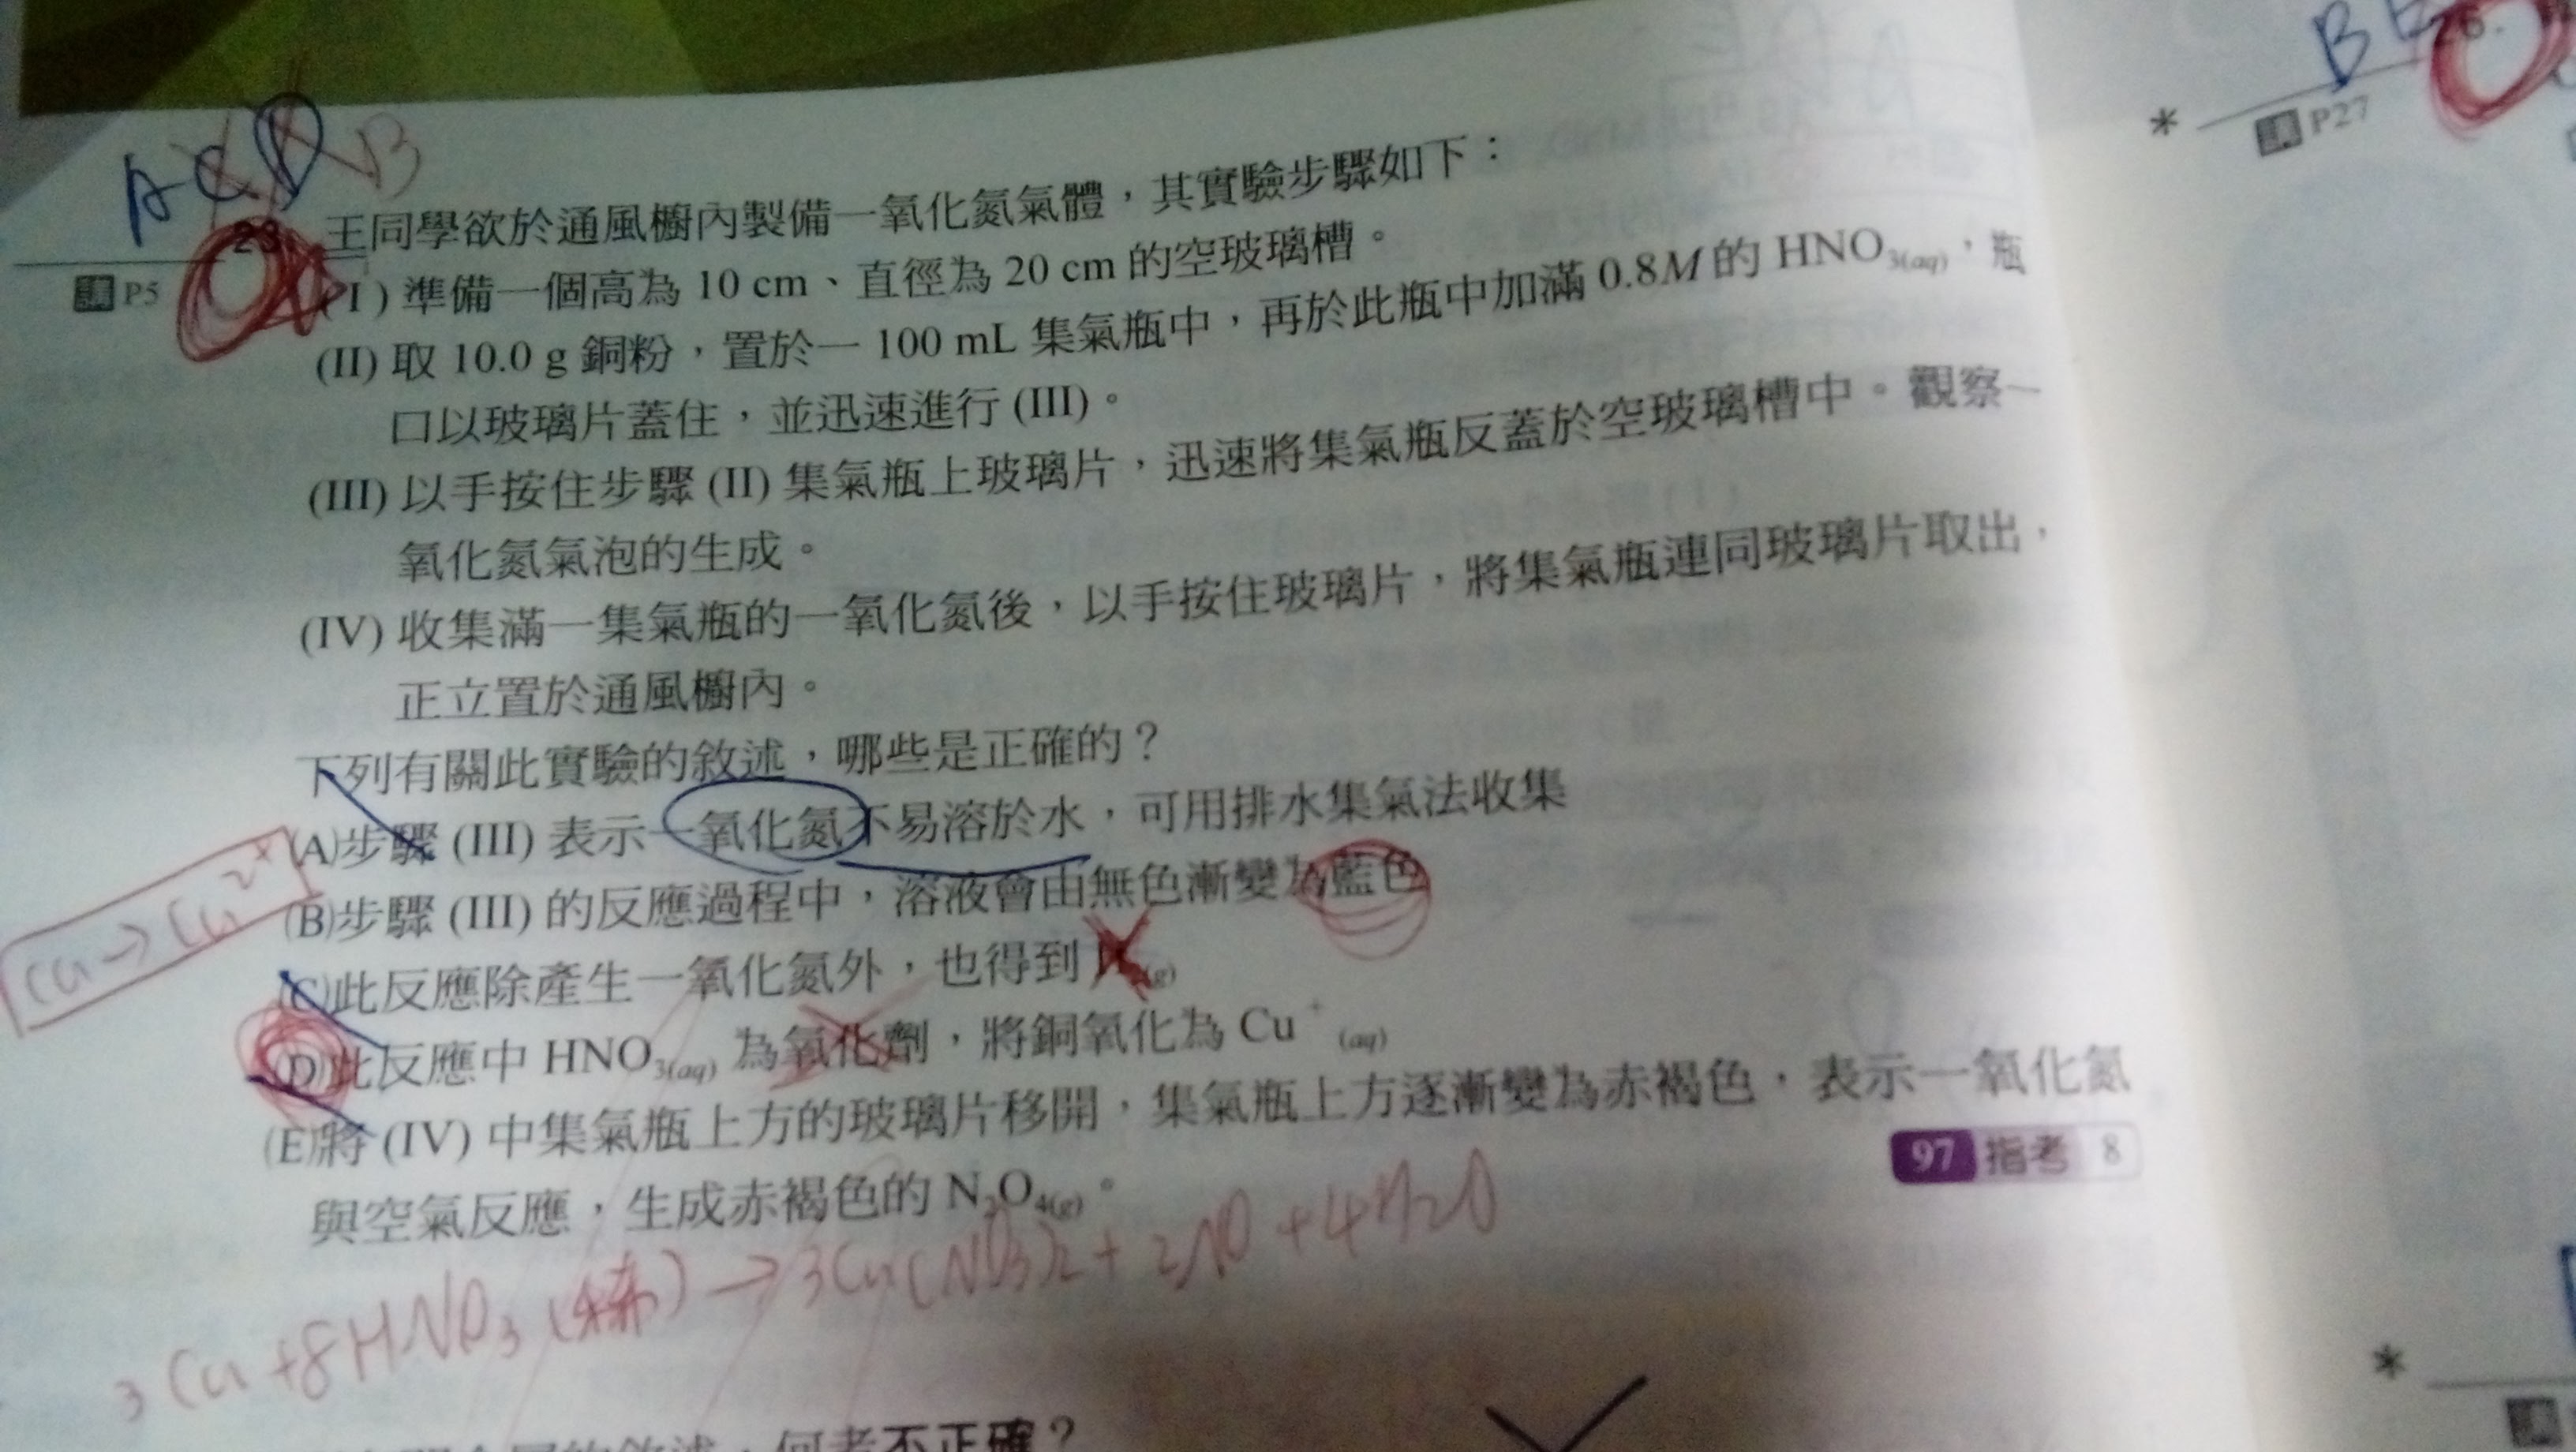 ACD B
BE
26.
* 
P27
23. 王同學欲於通風櫥內製備一氧化氮氣體，其實驗步驟如下：
P5
(I) 準備一個高為 10 cm、直徑為 20 cm 的空玻璃槽。
(II) 取 10.0 g 銅粉，置於一 100 mL 集氣瓶中，再於此瓶中加滿 0.8M 的 HNO3(aq)，瓶
口以玻璃片蓋住，並迅速進行 (III)。
(III) 以手按住步驟 (II) 集氣瓶上玻璃片，迅速將集氣瓶反蓋於空玻璃槽中。觀察一
氧化氮氣泡的生成。
(IV) 收集滿一集氣瓶的一氧化氮後，以手按住玻璃片，將集氣瓶連同玻璃片取出，
正立置於通風櫥內。
下列有關此實驗的敘述，哪些是正確的？
(A)步驟 (III) 表示一氧化氮不易溶於水，可用排水集氣法收集
Cu→Cu2+
(B)步驟 (III) 的反應過程中，溶液會由無色漸變為藍色
(C)此反應除產生一氧化氮外，也得到 (g)
(D)此反應中 HNO3(aq) 為氧化劑，將銅氧化為 Cu+(aq)
(E)將 (IV) 中集氣瓶上方的玻璃片移開，集氣瓶上方逐漸變為赤褐色，表示一氧化氮
與空氣反應，生成赤褐色的 N2O4(g)。
97 指考 8
3Cu+8HNO3(稀)→3Cu(NO3)2+2NO+4H2O
的敘述，何者不正確？
*